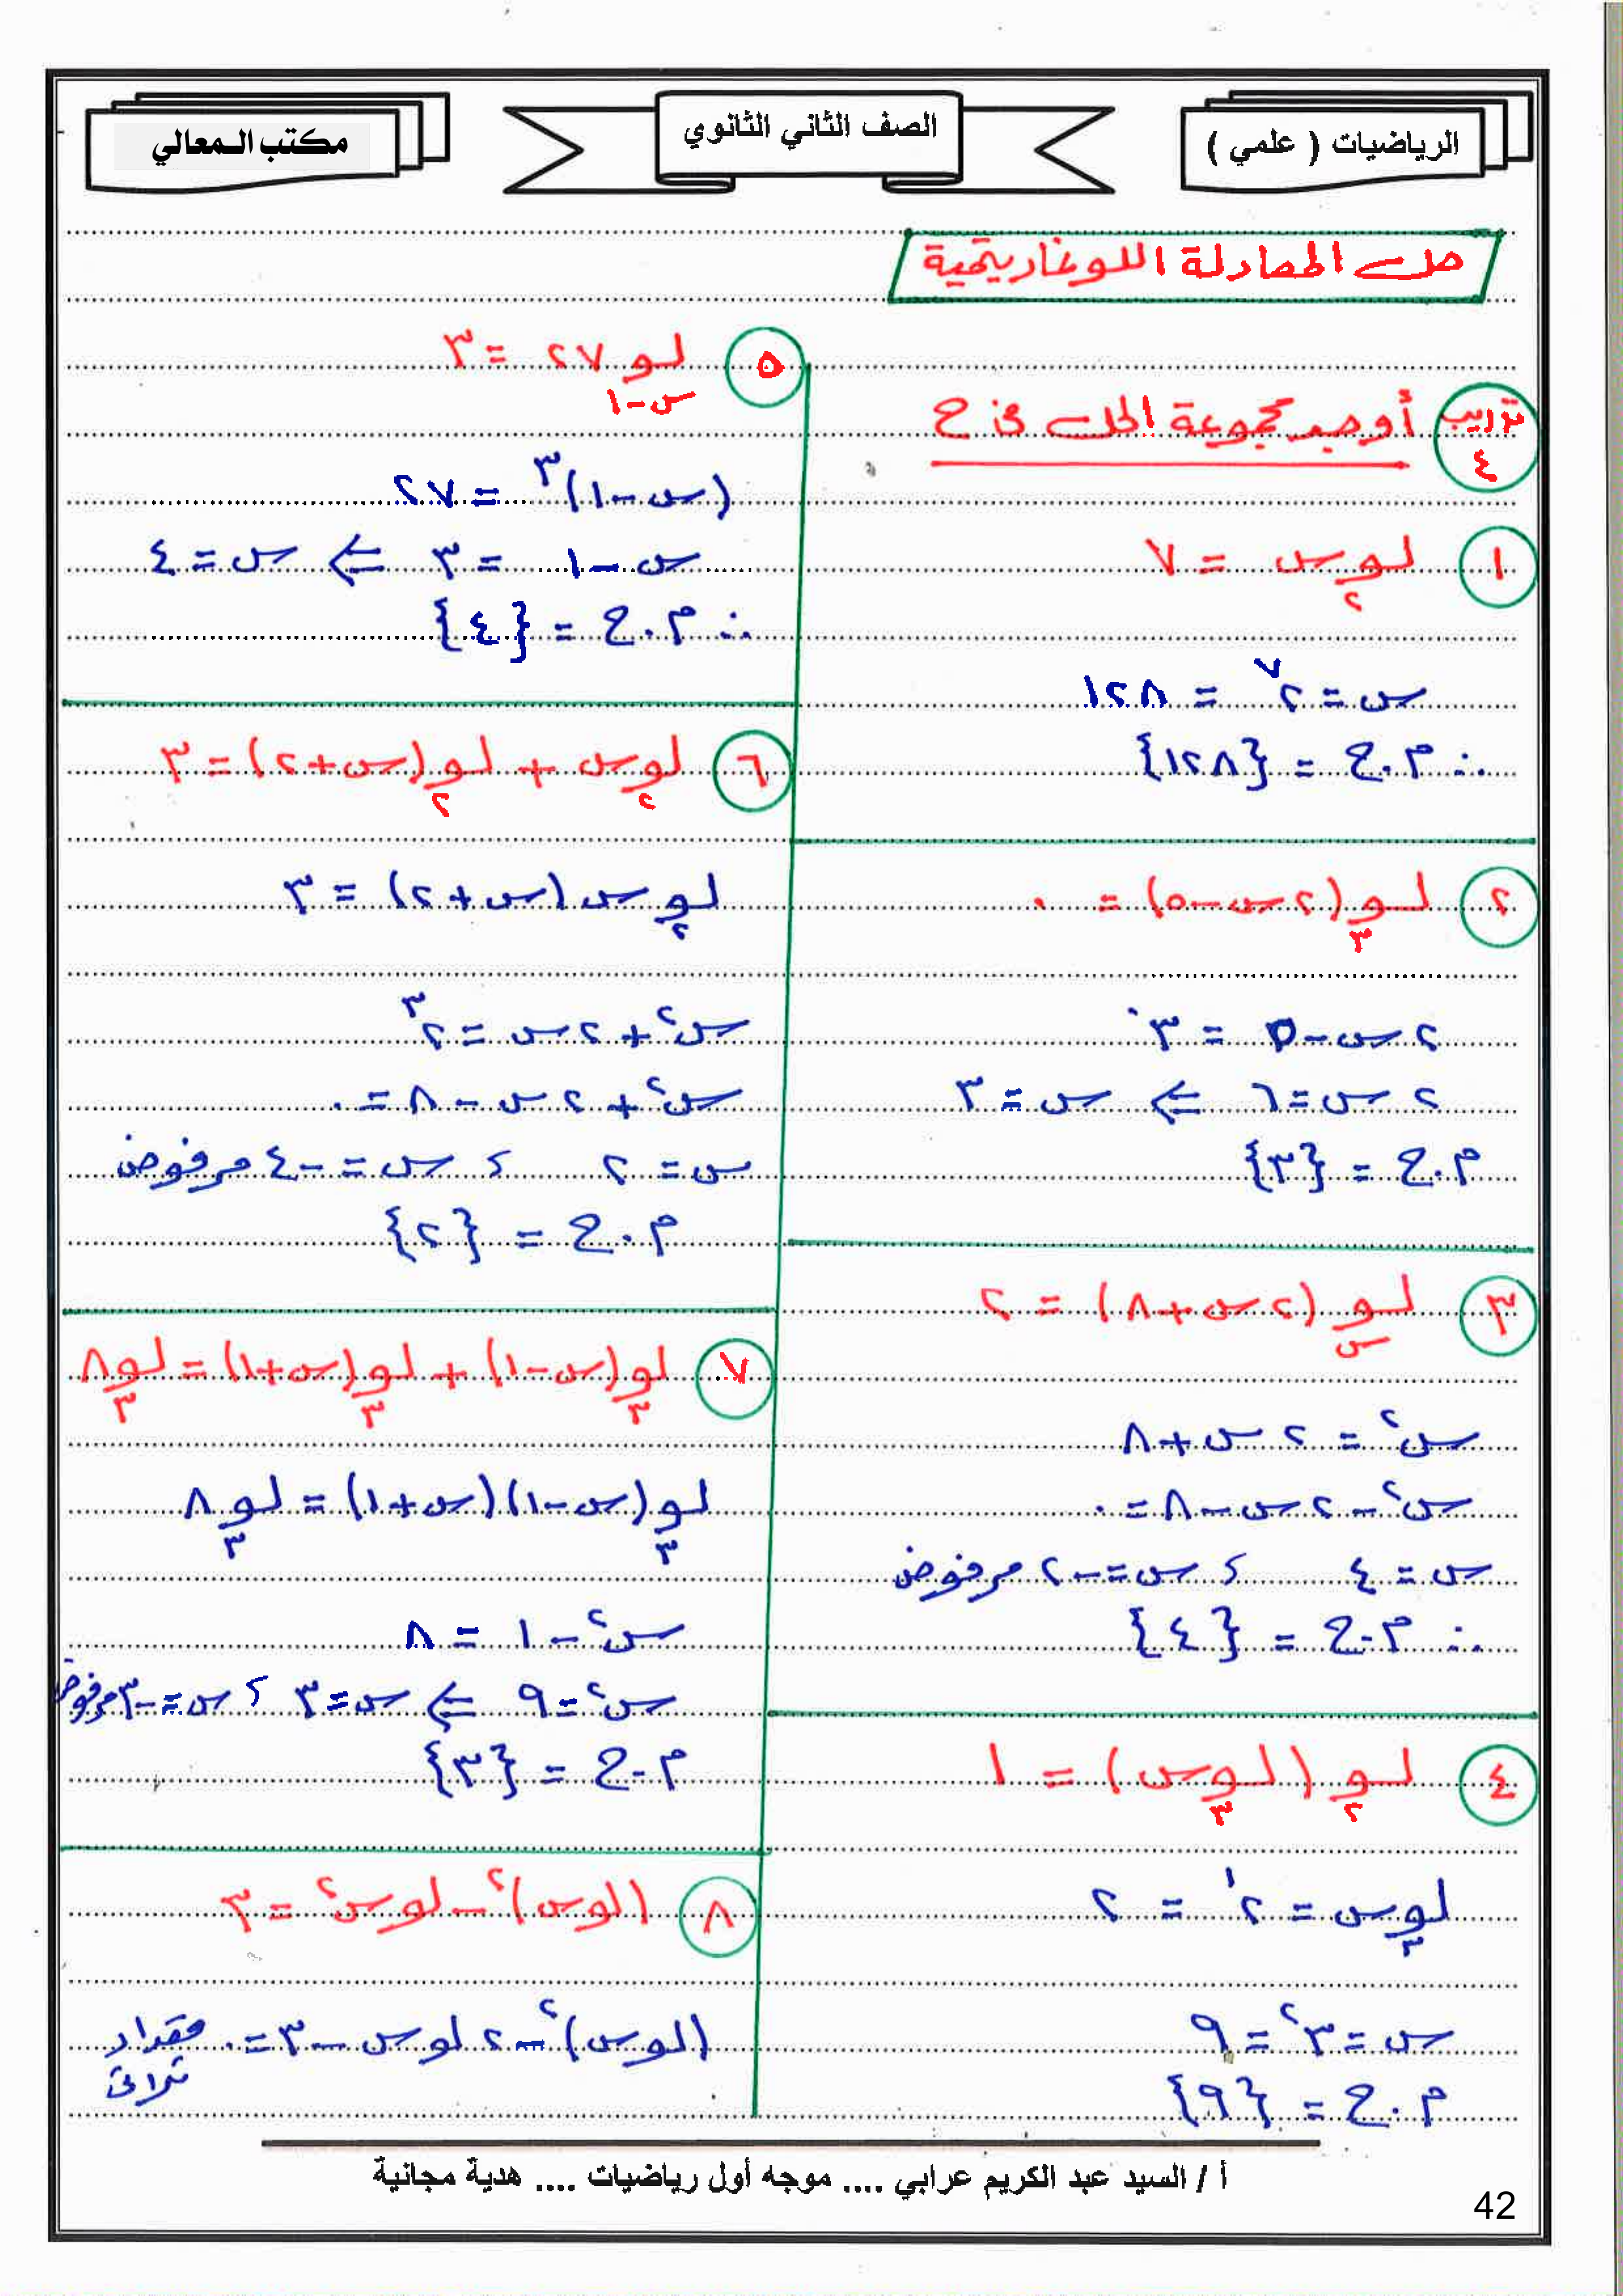 الرياضيات ( علمي )
الصف الثاني الثانوي
مكتب المعالي
حل المعادلة اللوغاريتمية
تدريب ٤ أوجد مجموعة الحل في ح
١ لو٢ س = ٧
س = ٢^٧ = ١٢٨
∴ م.ح = {١٢٨}
٢ لو٣ (٢س - ٥) = ٠
٢س - ٥ = ٣^٠
٢س = ٦ ⇐ س = ٣
م.ح = {٣}
٣ لوس (٢س + ٨) = ٢
س^٢ = ٢س + ٨
س^٢ - ٢س - ٨ = ٠
س = ٤ ، س = -٢ مرفوض
∴ م.ح = {٤}
٤ لو٢ (لو٣ س) = ١
لو٣ س = ٢^١ = ٢
س = ٣^٢ = ٩
م.ح = {٩}
٥ لو(س-١) ٢٧ = ٣
(س - ١)^٣ = ٢٧
س - ١ = ٣ ⇐ س = ٤
∴ م.ح = {٤}
٦ لو٢ س + لو٢ (س + ٢) = ٣
لو٢ س (س + ٢) = ٣
س^٢ + ٢س = ٢^٣
س^٢ + ٢س - ٨ = ٠
س = ٢ ، س = -٤ مرفوض
م.ح = {٢}
٧ لو٣ (س - ١) + لو٣ (س + ١) = لو٣ ٨
لو٣ (س - ١)(س + ١) = لو٣ ٨
س^٢ - ١ = ٨
س^٢ = ٩ ⇐ س = ٣ ، س = -٣ مرفوض
م.ح = {٣}
٨ (لو س)^٢ - لو س^٢ = ٣
(لو س)^٢ - ٢ لو س - ٣ = ٠ مقدار ثلاثى
أ / السيد عبد الكريم عرابي .... موجه أول رياضيات .... هدية مجانية
42